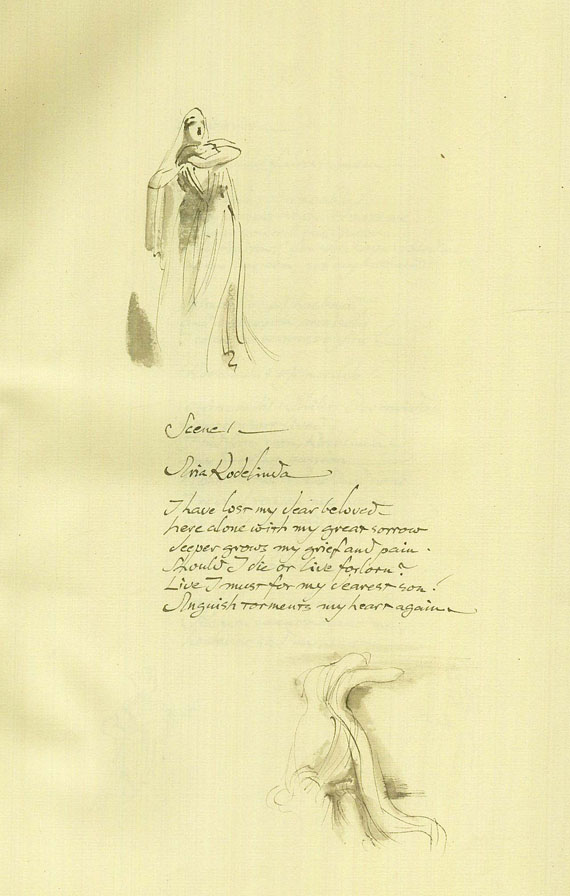 Scene 1
Aria Rodelinda
I have lost my dear beloved
here alone with my great sorrow
deeper grows my grief and pain.
Should I die or live forlorn?
Live I must for my dearest son!
Anguish torments my heart again